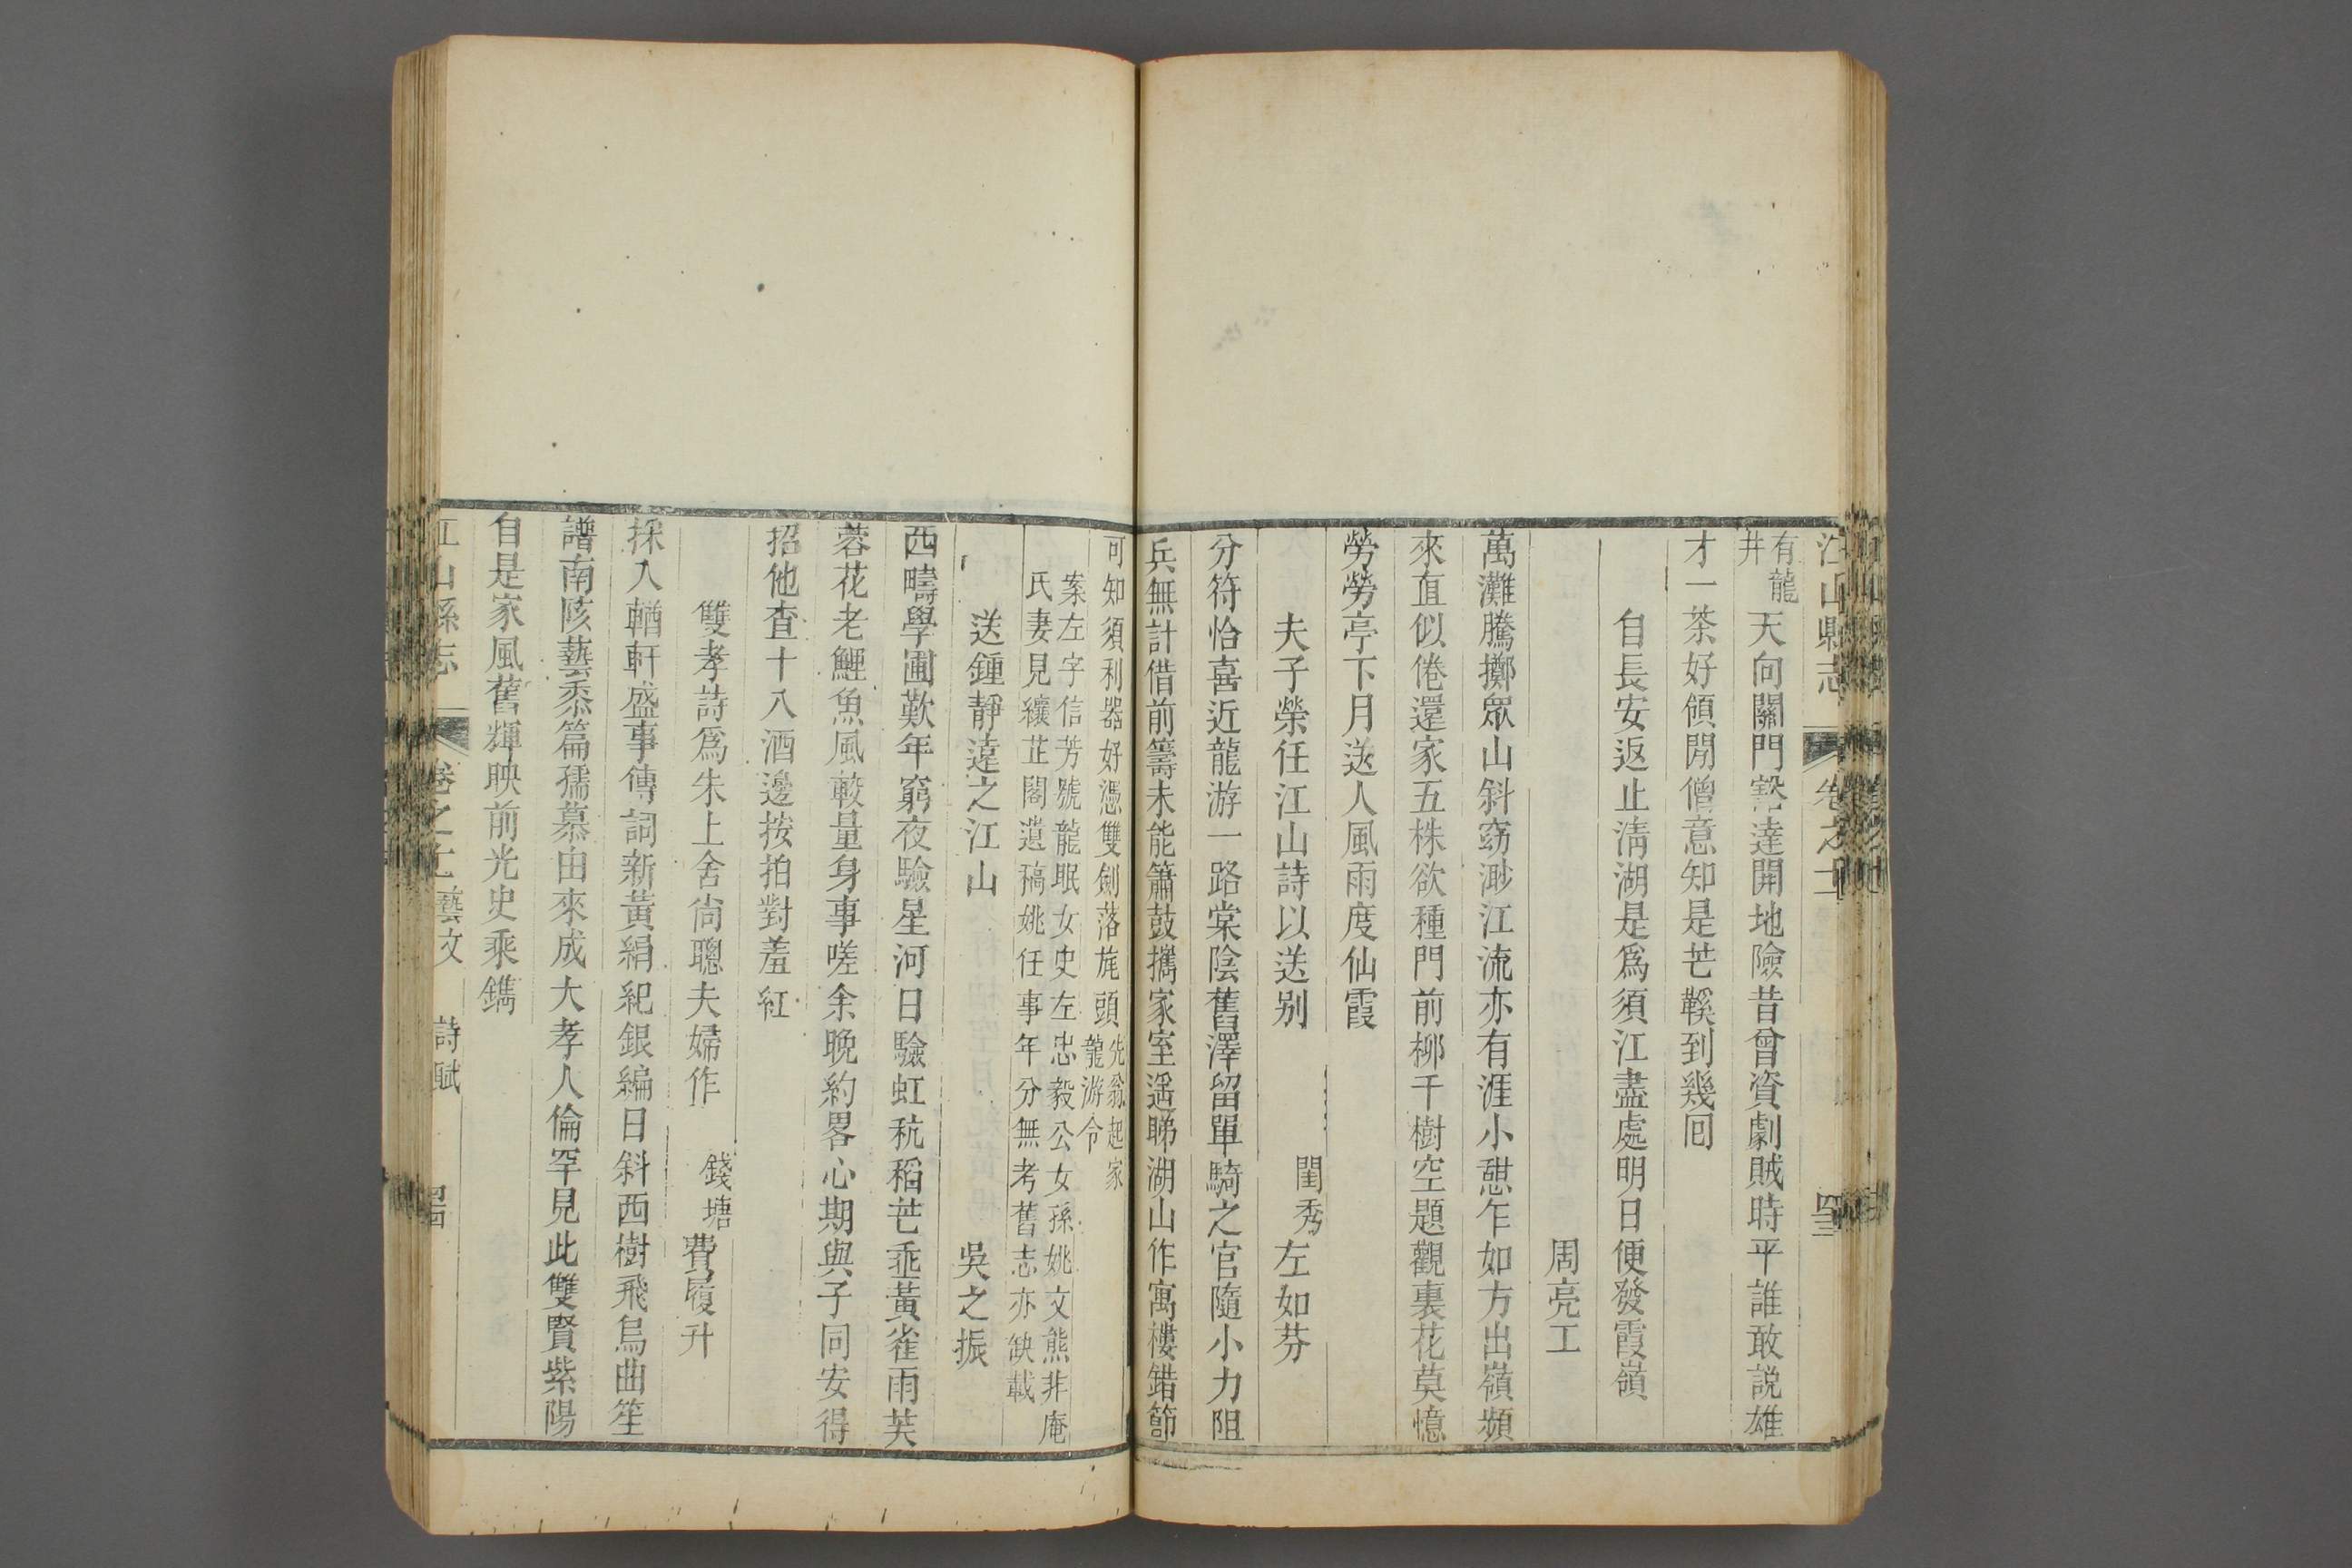 江山縣志 卷之十一 四三
有龍井天向關門豁達開地險昔曾資劇賊時平誰敢説雄
才一茶好領閒僧意知是芒鞵到幾囘
自長安返止清湖是爲須江盡處明日便發霞嶺
周亮工
萬灘騰擲眾山斜窈渺江流亦有涯小憇乍如方出嶺頻
來直似倦還家五株欲種門前柳千樹空題觀裏花莫憶
勞勞亭下月送人風雨度仙霞
夫子榮任江山詩以送别 閨秀左如芬
分符恰喜近龍游一路棠陰舊澤留單騎之官隨小力阻
兵無計借前籌未能簫鼓攜家室遥睇湖山作寓樓錯節
可知須利器好憑雙劍落旄頭先翁起家龍游令
案左字信芳號龍眠女史左忠毅公女孫姚文熊非庵
氏妻見纕芷閣遺稿姚任事年分無考舊志亦缺載
送鍾靜遠之江山 吳之振
西疇學圃歎年窮夜驗星河日驗虹秔稻芒乖黃雀雨芙
蓉花老鯉魚風較量身事嗟余晚約畧心期與子同安得
招他查十八酒邊按拍對羞紅
雙孝詩爲朱上舍尙聰夫婦作 錢塘費履升
採入輶軒盛事傳詞新黃絹紀銀編日斜西樹飛烏曲笙
譜南陔藝黍篇孺慕由來成大孝人倫罕見此雙賢紫陽
自是家風舊輝映前光史乘鐫
江山縣志 卷之十一 藝文 詩賦 四四